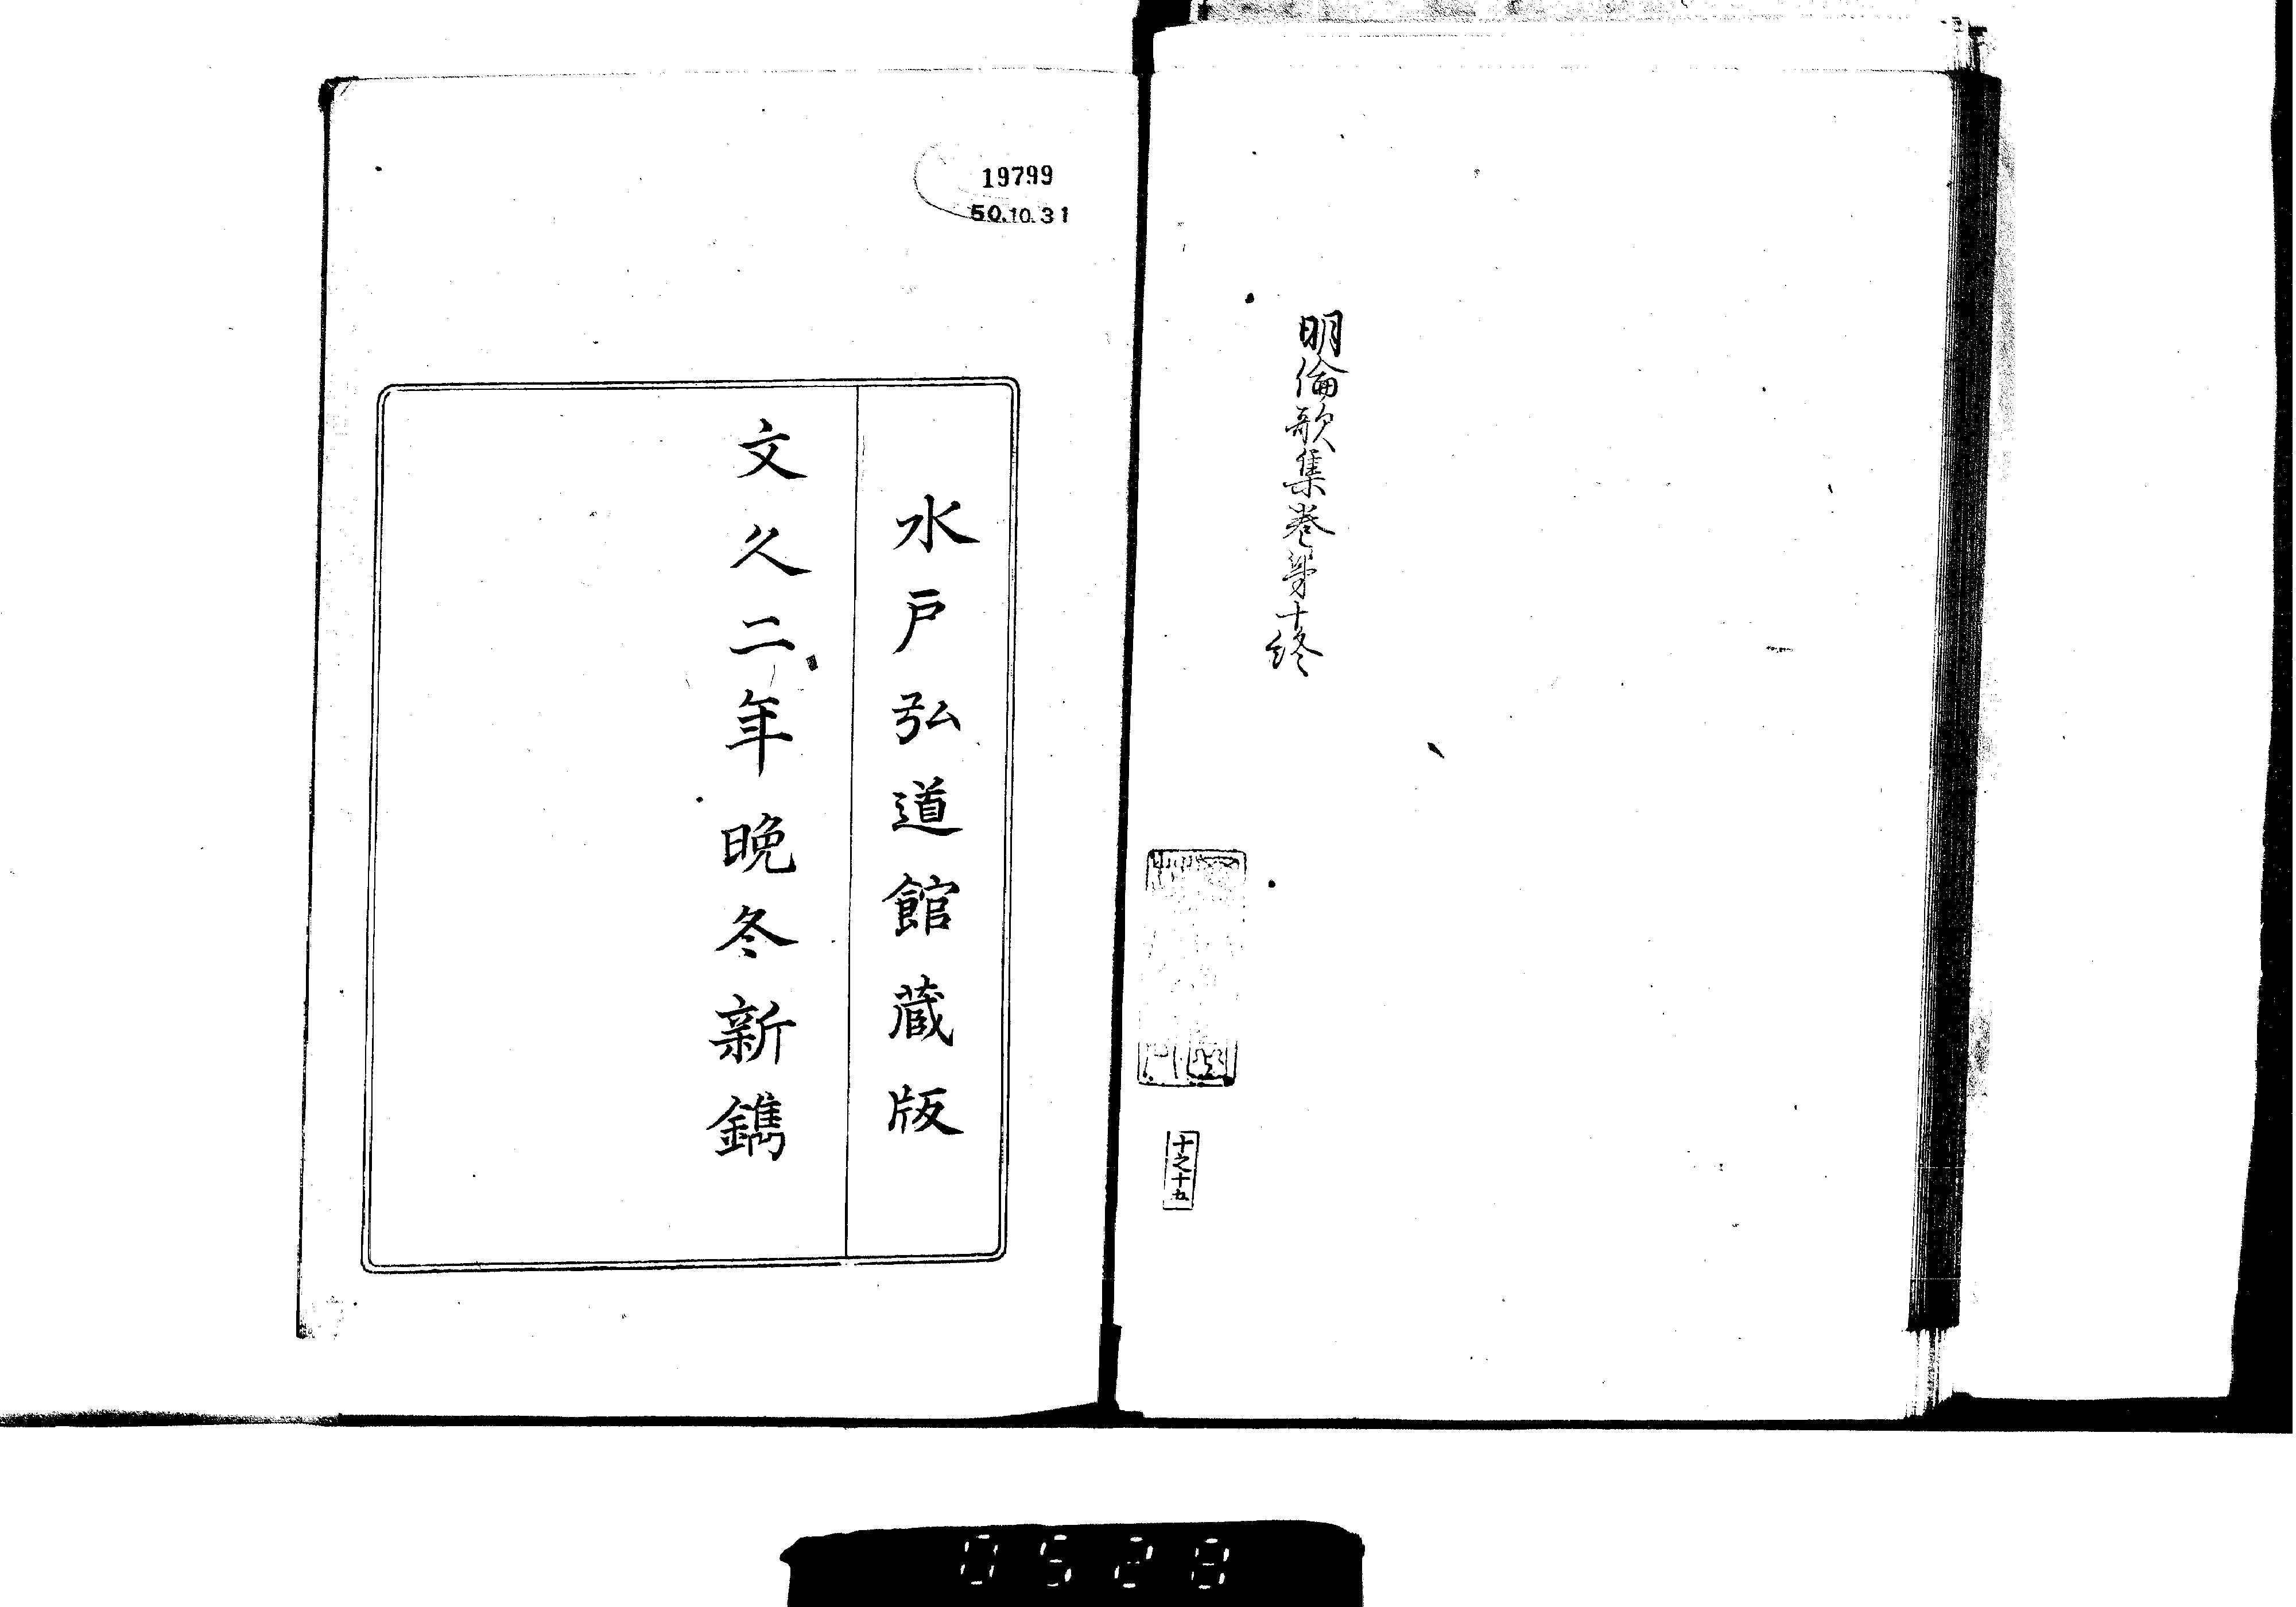 明倫歌集巻第十終
十之十五
水戸弘道館蔵版
文久二年晩冬新鐫
19799
50.10.31
0528